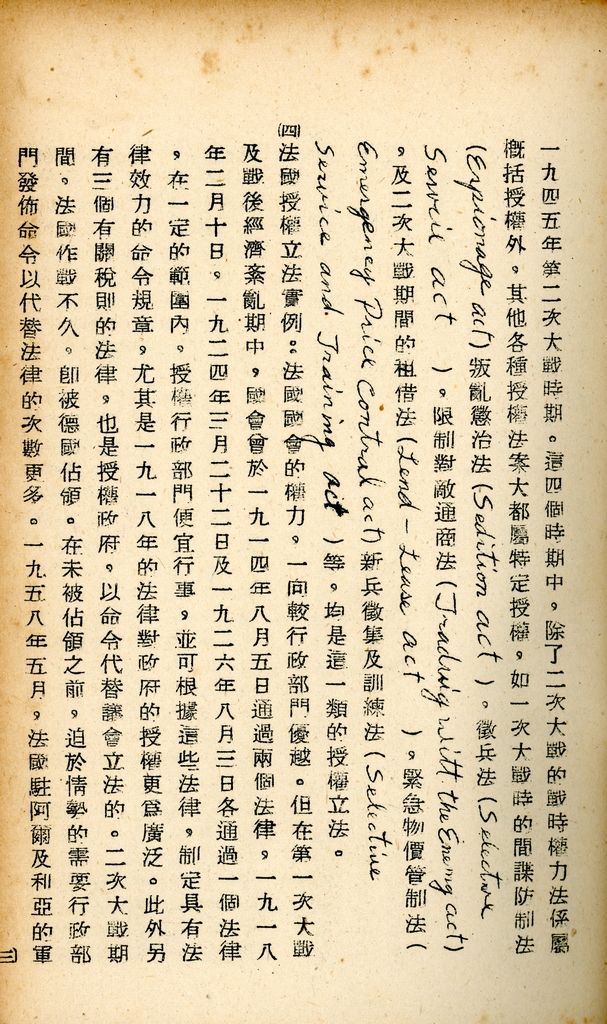 一九四五年第二次大戰時期。這四個時期中，除了二次大戰的戰時權力法係屬
概括授權外。其他各種授權法案大都屬特定授權，如一次大戰時的間諜防制法
(Espionage act)叛亂懲治法(Sedition act)。徵兵法(Selective
Servcie act)。限制對敵通商法(Trading witt the Enemg act)
。及二次大戰期間的租借法(Lend-Lease act)。緊急物價管制法(
Emergency Price Contral act)新兵徵集及訓練法(Selective
Service and Training act)等，均是這一類的授權立法。
㈣法國授權立法實例。法國國會的權力，一向較行政部門優越。但在第一次大戰
及戰後經濟紊亂期中，國會曾於一九一四年八月五日通過兩個法律，一九一八
年二月十日。一九二四年三月二十二日及一九二六年八月三日各通過一個法律
，在一定的範圍內，授權行政部門便宜行事，並可根據這些法律，制定具有法
律效力的命令規章，尤其是一九一八年的法律對政府的授權更爲廣泛。此外另
有三個有關稅則的法律，也是授權政府，以命令代替議會立法的。二次大戰期
間。法國作戰不久。卽被德國佔領。在未被佔領之前，迫於情勢的需要行政部
門發佈命令以代替法律的次數更多。一九五八年五月，法國駐阿爾及利亞的軍
三